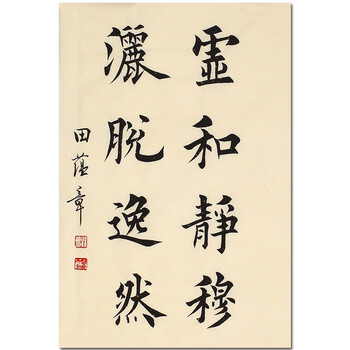 虛和靜穆
灑脫逸然
田蘊章